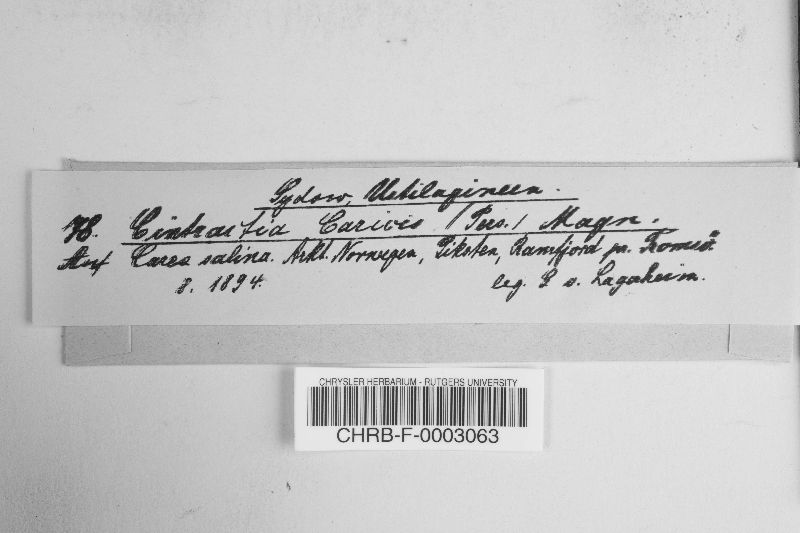 Sydow, Ustilagineen.
78. Cintractia Caricis (Pers.) Magn.
Auf Carex salina. Arkt. Norwegen, Ramfjord pr. Tromsö
8. 1894. leg. G v. Lagerheim.
CHRYSLER HERBARIUM - RUTGERS UNIVERSITY
CHRB-F-0003063